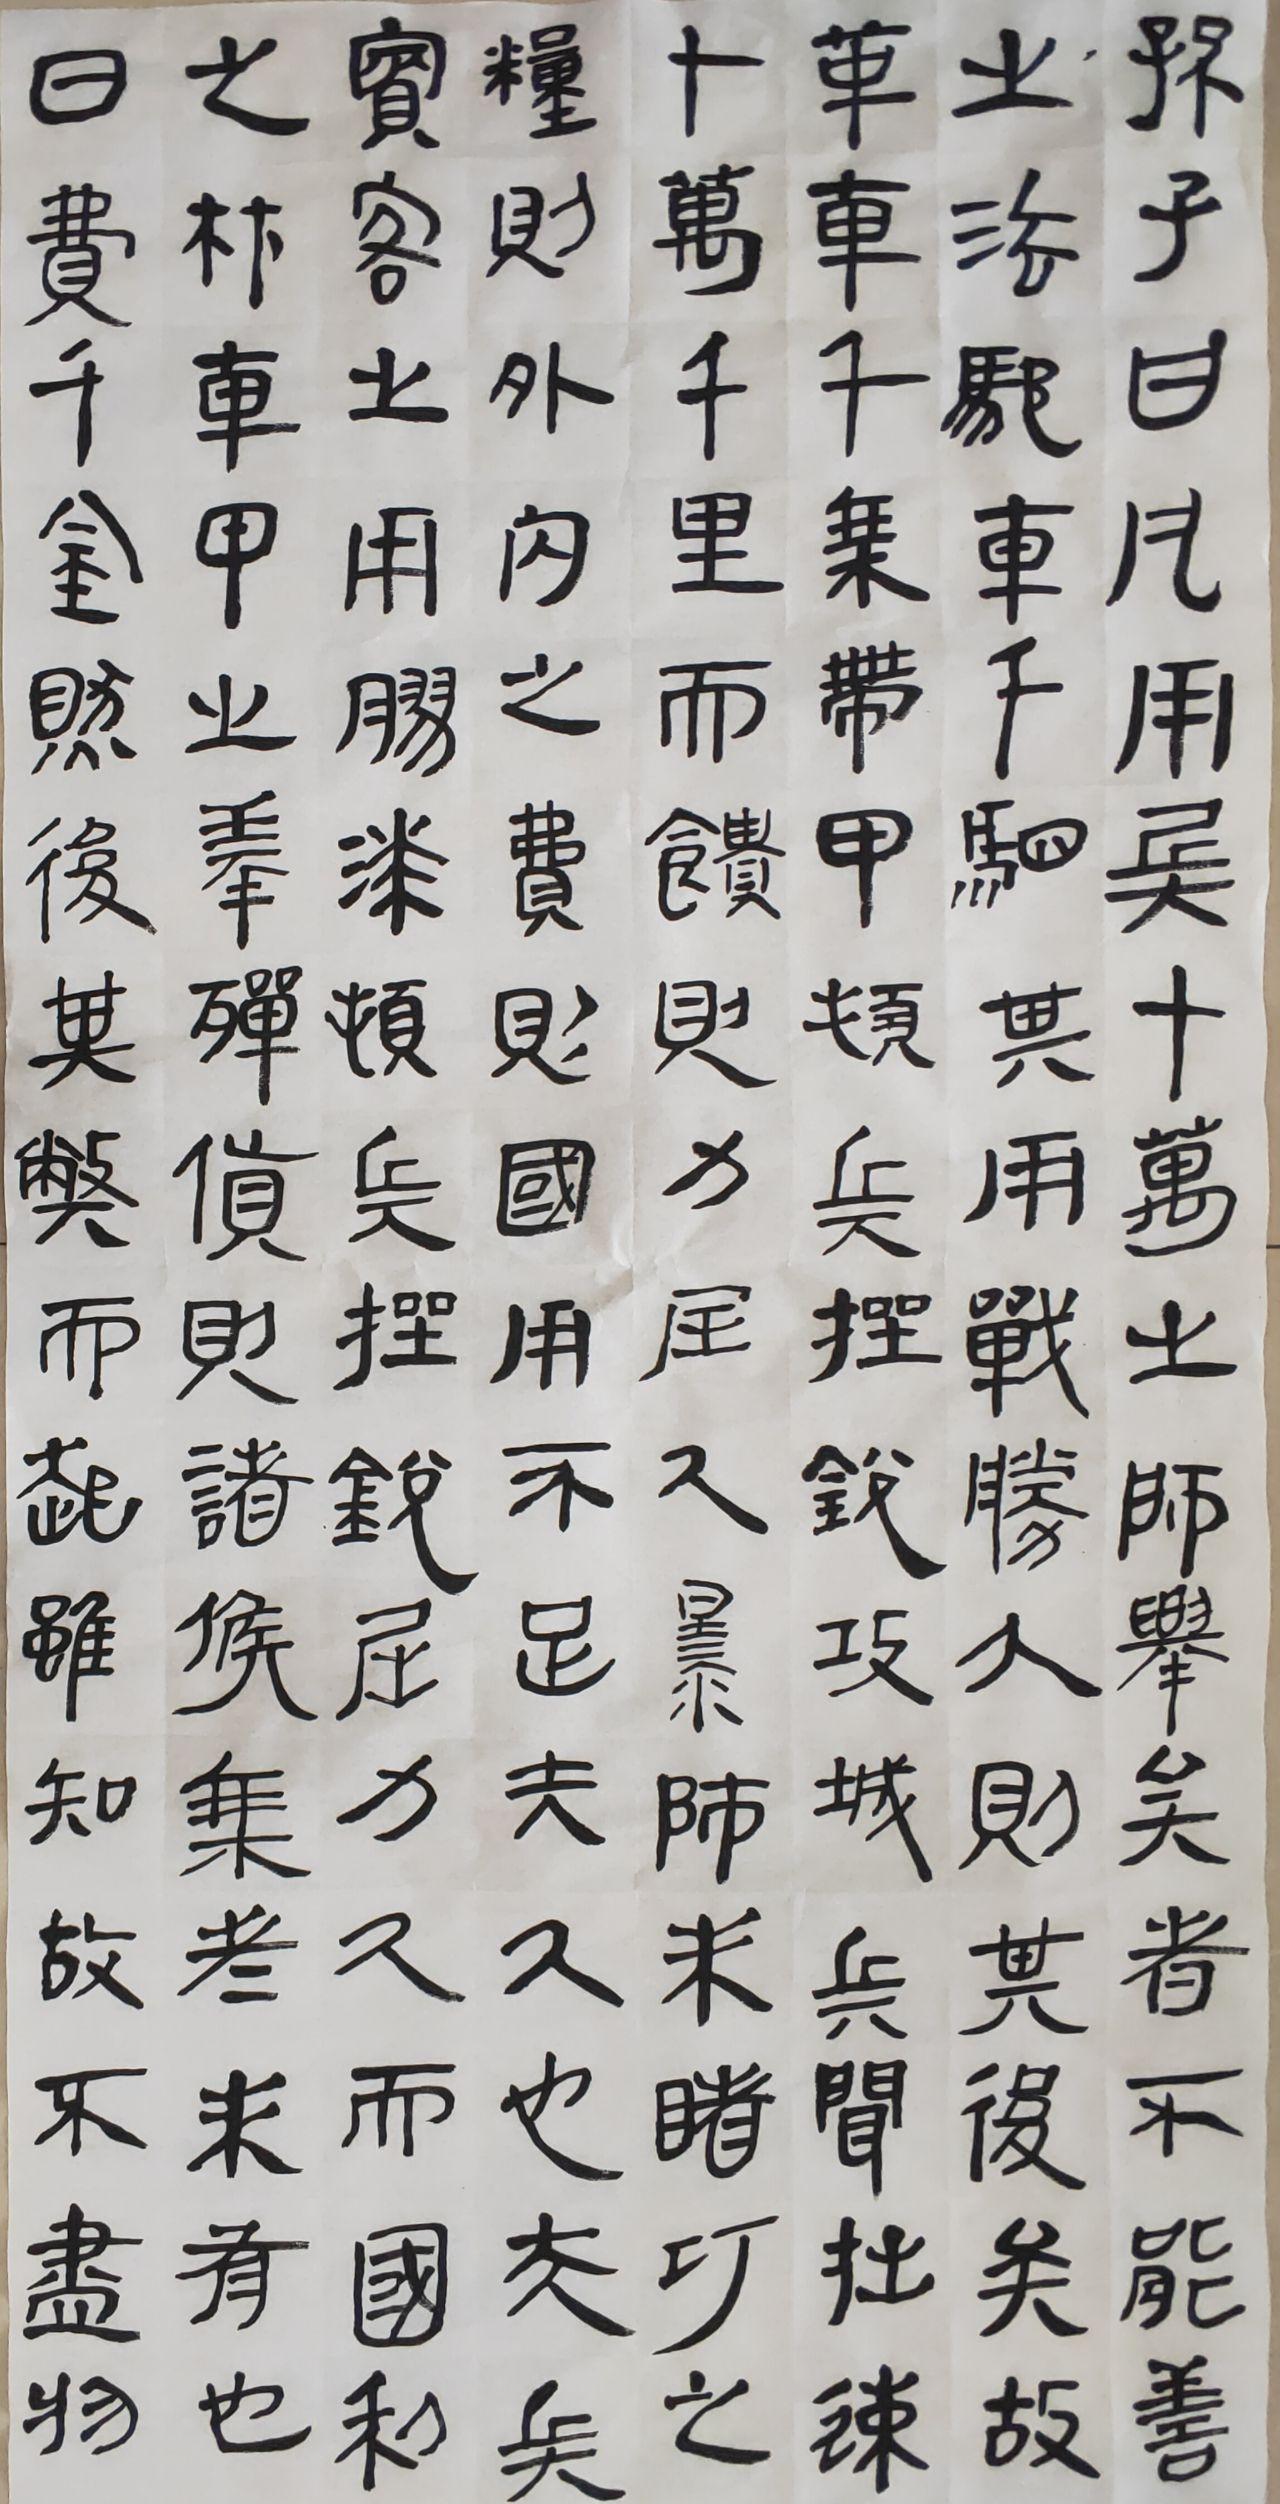 孫子曰凡用兵十萬之師舉矣者不能善
之法馳車千駟其用戰勝久則其後矣故
革車千乘帶甲頓兵挫銳攻城兵聞拙速
十萬千里而饋則力屈久暴師未睹巧之
糧則外内之費則國用不足夫久也夫兵
賓客之用膠漆頓兵挫銳屈力久而國利
之材車甲之奉殫貨則諸侯乘者未有也
日費千金然後其弊而起雖知故不盡物